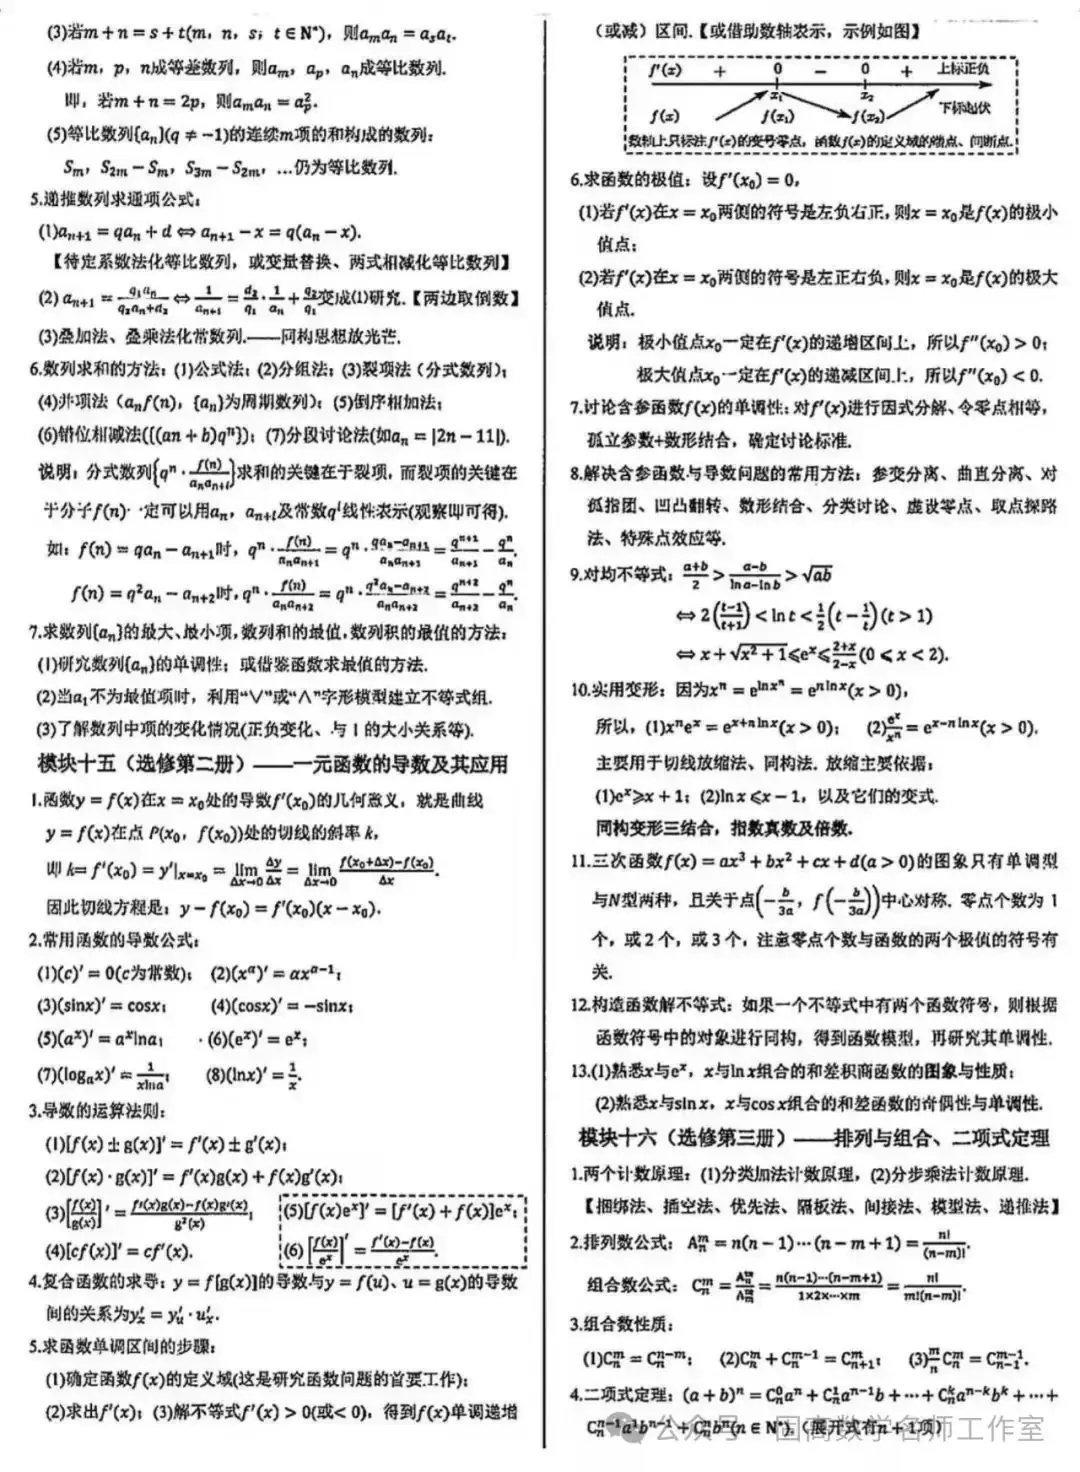 (3)若m + n = s + t(m, n, s, t ∈ N*), 则aₘaₙ = aₛaₜ.
(4)若m, p, n成等差数列, 则aₘ, aₚ, aₙ成等比数列.
即, 若m + n = 2p, 则aₘaₙ = aₚ².
(5)等比数列{aₙ}(q ≠ −1)的连续m项的和构成的数列:
Sₘ, S₂ₘ − Sₘ, S₃ₘ − S₂ₘ, …仍为等比数列.
5.递推数列求通项公式:
(1)aₙ₊₁ = qaₙ + d ⇔ aₙ₊₁ − x = q(aₙ − x).
【待定系数法化等比数列, 或变量替换、两式相减化等比数列】
(2) aₙ₊₁ = q₁aₙ/(q₂aₙ+d₂) ⇔ 1/aₙ₊₁ = d₂/q₁ · 1/aₙ + q₂/q₁变成(1)研究.【两边取倒数】
(3)叠加法、叠乘法化常数列.——同构思想放光芒.
6.数列求和的方法: (1)公式法; (2)分组法; (3)裂项法（分式数列）;
(4)并项法（aₙf(n), {aₙ}为周期数列）; (5)倒序相加法;
(6)错位相减法({(an + b)qⁿ}); (7)分段讨论法(如aₙ = |2n − 11|).
说明: 分式数列{qⁿ · f(n)/(aₙaₙ₊ₜ)}求和的关键在于裂项, 而裂项的关键在
于分子f(n)一定可以用aₙ, aₙ₊ₜ及常数qᵗ线性表示(观察即可得).
如: f(n) = qaₙ − aₙ₊₁时, qⁿ · f(n)/(aₙaₙ₊₁) = qⁿ · (qaₙ−aₙ₊₁)/(aₙaₙ₊₁) = qⁿ⁺¹/aₙ₊₁ − qⁿ/aₙ.
f(n) = q²aₙ − aₙ₊₂时, qⁿ · f(n)/(aₙaₙ₊₂) = qⁿ · (q²aₙ−aₙ₊₂)/(aₙaₙ₊₂) = qⁿ⁺²/aₙ₊₂ − qⁿ/aₙ.
7.求数列{aₙ}的最大、最小项, 数列和的最值, 数列积的最值的方法:
(1)研究数列{aₙ}的单调性; 或借鉴函数求最值的方法.
(2)当a₁不为最值项时, 利用“∨”或“∧”字形模型建立不等式组.
(3)了解数列中项的变化情况(正负变化、与1的大小关系等).
模块十五（选修第二册）——一元函数的导数及其应用
1.函数y = f(x)在x = x₀处的导数f′(x₀)的几何意义, 就是曲线
y = f(x)在点 P(x₀, f(x₀))处的切线的斜率 k,
即 k = f′(x₀) = y′|ₓ₌ₓ₀ = lim(Δx→0) Δy/Δx = lim(Δx→0) (f(x₀+Δx)−f(x₀))/Δx.
因此切线方程是: y − f(x₀) = f′(x₀)(x − x₀).
2.常用函数的导数公式:
(1)(c)′ = 0(c为常数); (2)(x^α)′ = αx^(α−1);
(3)(sinx)′ = cosx; (4)(cosx)′ = −sinx;
(5)(aˣ)′ = aˣlna; (6)(eˣ)′ = eˣ;
(7)(logₐx)′ = 1/(xlna); (8)(lnx)′ = 1/x.
3.导数的运算法则:
(1)[f(x) ± g(x)]′ = f′(x) ± g′(x);
(2)[f(x) · g(x)]′ = f′(x)g(x) + f(x)g′(x);
(3)[f(x)/g(x)]′ = (f′(x)g(x)−f(x)g′(x))/g²(x); (5)[f(x)eˣ]′ = [f′(x) + f(x)]eˣ;
(4)[cf(x)]′ = cf′(x). (6)[f(x)/eˣ]′ = (f′(x)−f(x))/eˣ.
4.复合函数的求导: y = f[g(x)]的导数与y = f(u)、u = g(x)的导数
间的关系为yₓ′ = yᵤ′ · uₓ′.
5.求函数单调区间的步骤:
(1)确定函数f(x)的定义域(这是研究函数问题的首要工作);
(2)求出f′(x); (3)解不等式f′(x) > 0(或< 0), 得到f(x)单调递增
（或减）区间.【或借助数轴表示, 示例如图】
f′(x) + 0 − 0 + 上标正负
x₁ x₂
f(x) f(x₁) f(x₂) 下标起伏
数轴上只标注f′(x)的变号零点, 函数f(x)的定义域的端点、间断点.
6.求函数的极值: 设f′(x₀) = 0,
(1)若f′(x)在x = x₀两侧的符号是左负右正, 则x = x₀是f(x)的极小
值点;
(2)若f′(x)在x = x₀两侧的符号是左正右负, 则x = x₀是f(x)的极大
值点.
说明: 极小值点x₀一定在f′(x)的递增区间上, 所以f″(x₀) > 0;
极大值点x₀一定在f′(x)的递减区间上, 所以f″(x₀) < 0.
7.讨论含参函数f(x)的单调性: 对f′(x)进行因式分解、令零点相等,
孤立参数+数形结合, 确定讨论标准.
8.解决含参函数与导数问题的常用方法: 参变分离、曲直分离、对
孤指团、凹凸翻转、数形结合、分类讨论、虚设零点、取点探路
法、特殊点效应等.
9.对均不等式: (a+b)/2 > (a−b)/(lna−lnb) > √(ab)
⇔ 2((t−1)/(t+1)) < lnt < 1/2(t − 1/t)(t > 1)
⇔ x + √(x² + 1) ⩽ eˣ ⩽ (2+x)/(2−x)(0 ⩽ x < 2).
10.实用变形: 因为xⁿ = e^(lnxⁿ) = e^(nlnx)(x > 0),
所以, (1)xⁿeˣ = e^(x+nlnx)(x > 0); (2)eˣ/xⁿ = e^(x−nlnx)(x > 0).
主要用于切线放缩法、同构法. 放缩主要依据:
(1)eˣ ⩾ x + 1; (2)lnx ⩽ x − 1, 以及它们的变式.
同构变形三结合, 指数真数及倍数.
11.三次函数f(x) = ax³ + bx² + cx + d(a > 0)的图象只有单调型
与N型两种, 且关于点(−b/3a, f(−b/3a))中心对称. 零点个数为 1
个, 或 2 个, 或 3 个, 注意零点个数与函数的两个极值的符号有
关.
12.构造函数解不等式: 如果一个不等式中有两个函数符号, 则根据
函数符号中的对象进行同构, 得到函数模型, 再研究其单调性.
13.(1)熟悉x与eˣ, x与lnx组合的和差积商函数的图象与性质;
(2)熟悉x与sinx, x与cosx组合的和差函数的奇偶性与单调性.
模块十六（选修第三册）——排列与组合、二项式定理
1.两个计数原理: (1)分类加法计数原理, (2)分步乘法计数原理.
【捆绑法、插空法、优先法、隔板法、间接法、模型法、递推法】
2.排列数公式: Aₙᵐ = n(n − 1)⋯(n − m + 1) = n!/(n−m)!.
组合数公式: Cₙᵐ = Aₙᵐ/Aₘᵐ = n(n−1)⋯(n−m+1)/(1×2×⋯×m) = n!/(m!(n−m)!).
3.组合数性质:
(1)Cₙᵐ = Cₙⁿ⁻ᵐ; (2)Cₙᵐ + Cₙᵐ⁻¹ = Cₙ₊₁ᵐ; (3)m/n Cₙᵐ = Cₙ₋₁ᵐ⁻¹.
4.二项式定理: (a + b)ⁿ = Cₙ⁰aⁿ + Cₙ¹aⁿ⁻¹b + ⋯ + Cₙᵏaⁿ⁻ᵏbᵏ + ⋯ +
Cₙⁿ⁻¹a¹bⁿ⁻¹ + Cₙⁿbⁿ(n ∈ N*). (展开式有n + 1项)
公众号 · 固高数学名师工作室